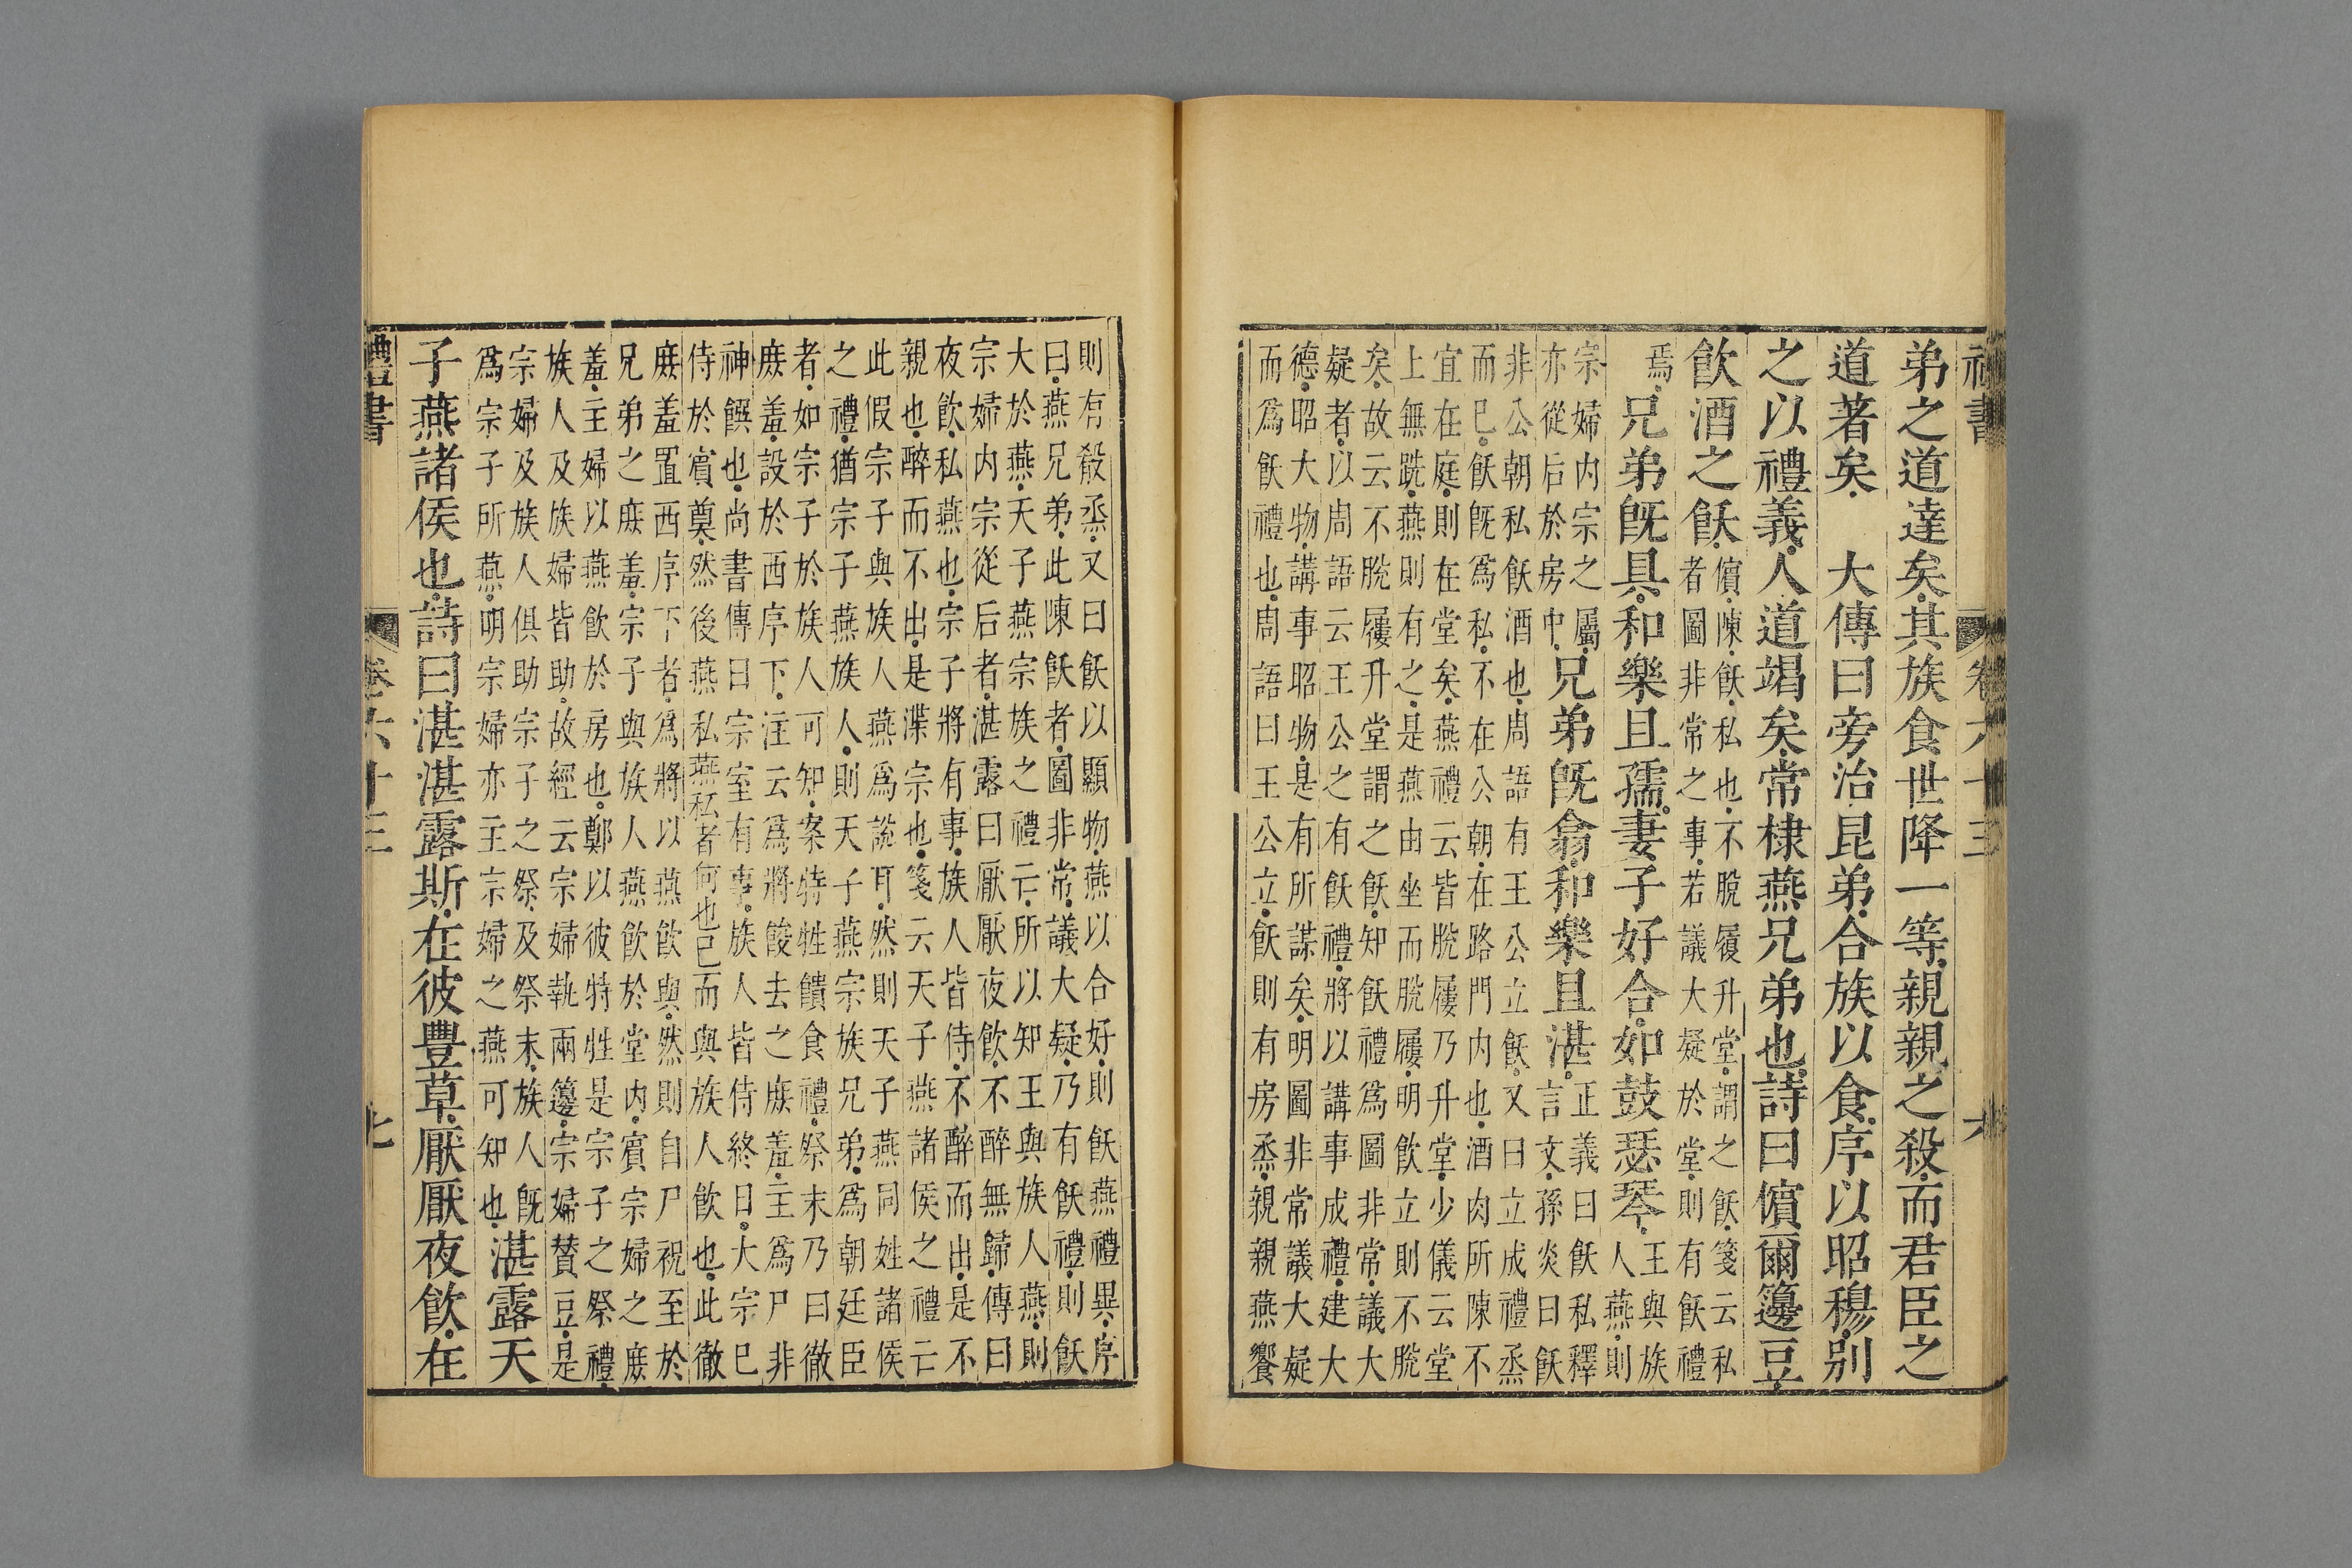 禮書 卷六十三 六
弟之道達矣其族食世降一等親親之殺而君臣之
道著矣 大傳曰旁治昆弟合族以食序以昭穆別
之以禮義人道竭矣常棣燕兄弟也詩曰儐爾籩豆
飲酒之飫儐陳飫私也不脫屨升堂謂之飫箋云私
者圖非常之事若議大疑於堂則有飫禮
焉兄弟旣具和樂且孺妻子好合如鼓瑟琴王與族
人燕則
宗婦內宗之屬
亦從后於房中兄弟旣翕和樂且湛正義曰飫私釋
言文孫炎曰飫
非公朝私飫酒也周語有王公立飫又曰立成禮烝
而已飫旣爲私不在公朝在路門内也酒肉所陳不
宜在庭則在堂矣燕禮云皆脫屨乃升堂少儀云堂
上無跣燕則有之是燕由坐而脫屨明飲立則不脫
矣故云不脫屨升堂謂之飫知飫禮爲圖非常議大
疑者以周語云王公之有飫禮將以講事成禮建大
德昭大物講事昭物是有所謀矣明圖非常議大疑
而爲飫禮也周語曰王公立飫則有房烝親親燕饗
則有殽烝又曰飫以顯物燕以合好則飫燕禮異序
曰燕兄弟此陳飫者圖非常議大疑乃有飫禮則飫
大於燕天子燕宗族之禮云所以知王與族人燕則
宗婦內宗從后者湛露曰厭厭夜飲不醉無歸傳曰
夜飲私燕也宗子將有事族人皆侍不醉而出是不
親也醉而不出是渫宗也箋云天子燕諸侯之禮云
此假宗子與族人燕爲說耳然則天子燕同姓諸侯
之禮猶宗子燕族人則天子燕宗族兄弟爲朝廷臣
者如宗子於族人可知案特牲饋食禮祭末乃曰徹
庶羞設於西序下注云爲將餕去之庶羞主爲尸非
神饌也尚書傳曰宗室有事族人皆侍終日大宗已
侍於賓奠然後燕私燕私者何也已而與族人飲也此徹
庶羞置西序下者爲將以燕飲與然則自尸祝至於
兄弟之庶羞宗子與族人燕飲於堂内賓宗婦之庶
羞主婦以燕飲於房也鄭以彼特牲是宗子之祭禮
族人及族婦皆助故經云宗婦執兩籩宗婦贊豆是
宗婦及族人俱助宗子之祭及祭末族人旣
爲宗子所燕明宗婦亦主宗婦之燕可知也湛露天
子燕諸侯也詩曰湛湛露斯在彼豐草厭厭夜飲在
禮書 卷六十三 七